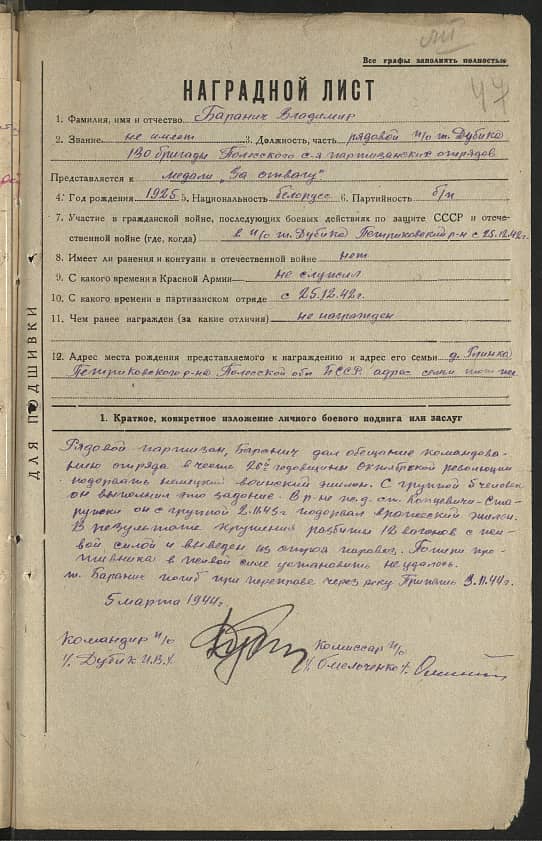 Все графы заполнять полностью
47
НАГРАДНОЙ ЛИСТ
1. Фамилия, имя и отчество Баранич Владимир
2. Звание не имеет 3. Должность, часть рядовой п/о т. Дубика
130 бригады Полесского с-я партизанских отрядов
Представляется к медали „За отвагу"
4. Год рождения 1925 5. Национальность белорус 6. Партийность б/п
7. Участие в гражданской войне, последующих боевых действиях по защите СССР и отече-
ственной войне (где, когда) в п/о т. Дубика Петриковский р-н с 25.12.42г.
8. Имеет ли ранения и контузии в отечественной войне нет
9. С какого времени в Красной Армии не служил
10. С какого времени в партизанском отряде с 25.12.42г.
11. Чем ранее награжден (за какие отличия) не награжден
12. Адрес места рождения представляемого к награждению и адрес его семьи д. Глинка
Петриковского р-на Полесской обл БССР адрес семьи тот же
1. Краткое, конкретное изложение личного боевого подвига или заслуг
Рядовой партизан, Баранич дал обещание командова-
нию отряда в честь 26й годовщины Октябрской революции
подорвать немецкий воинский эшелон. С группой 5 человек
он выполнил это задание. В р-не ж.д. ст. Копцевичи-Ста-
рушки он с группой 2.11.43г подорвал вражеский эшелон.
В результате крушения разбиты 12 вагонов с жи-
вой силой и выведен из строя паровоз. Потери про-
тивника в живой силе установить не удалось.
т. Баранич погиб при переправе через реку Припять 3.11.44г.
5 марта 1944г.
Командир п/о
Дубик И.В.
Комиссар п/о
Омельченко
ДЛЯ ПОДШИВКИ